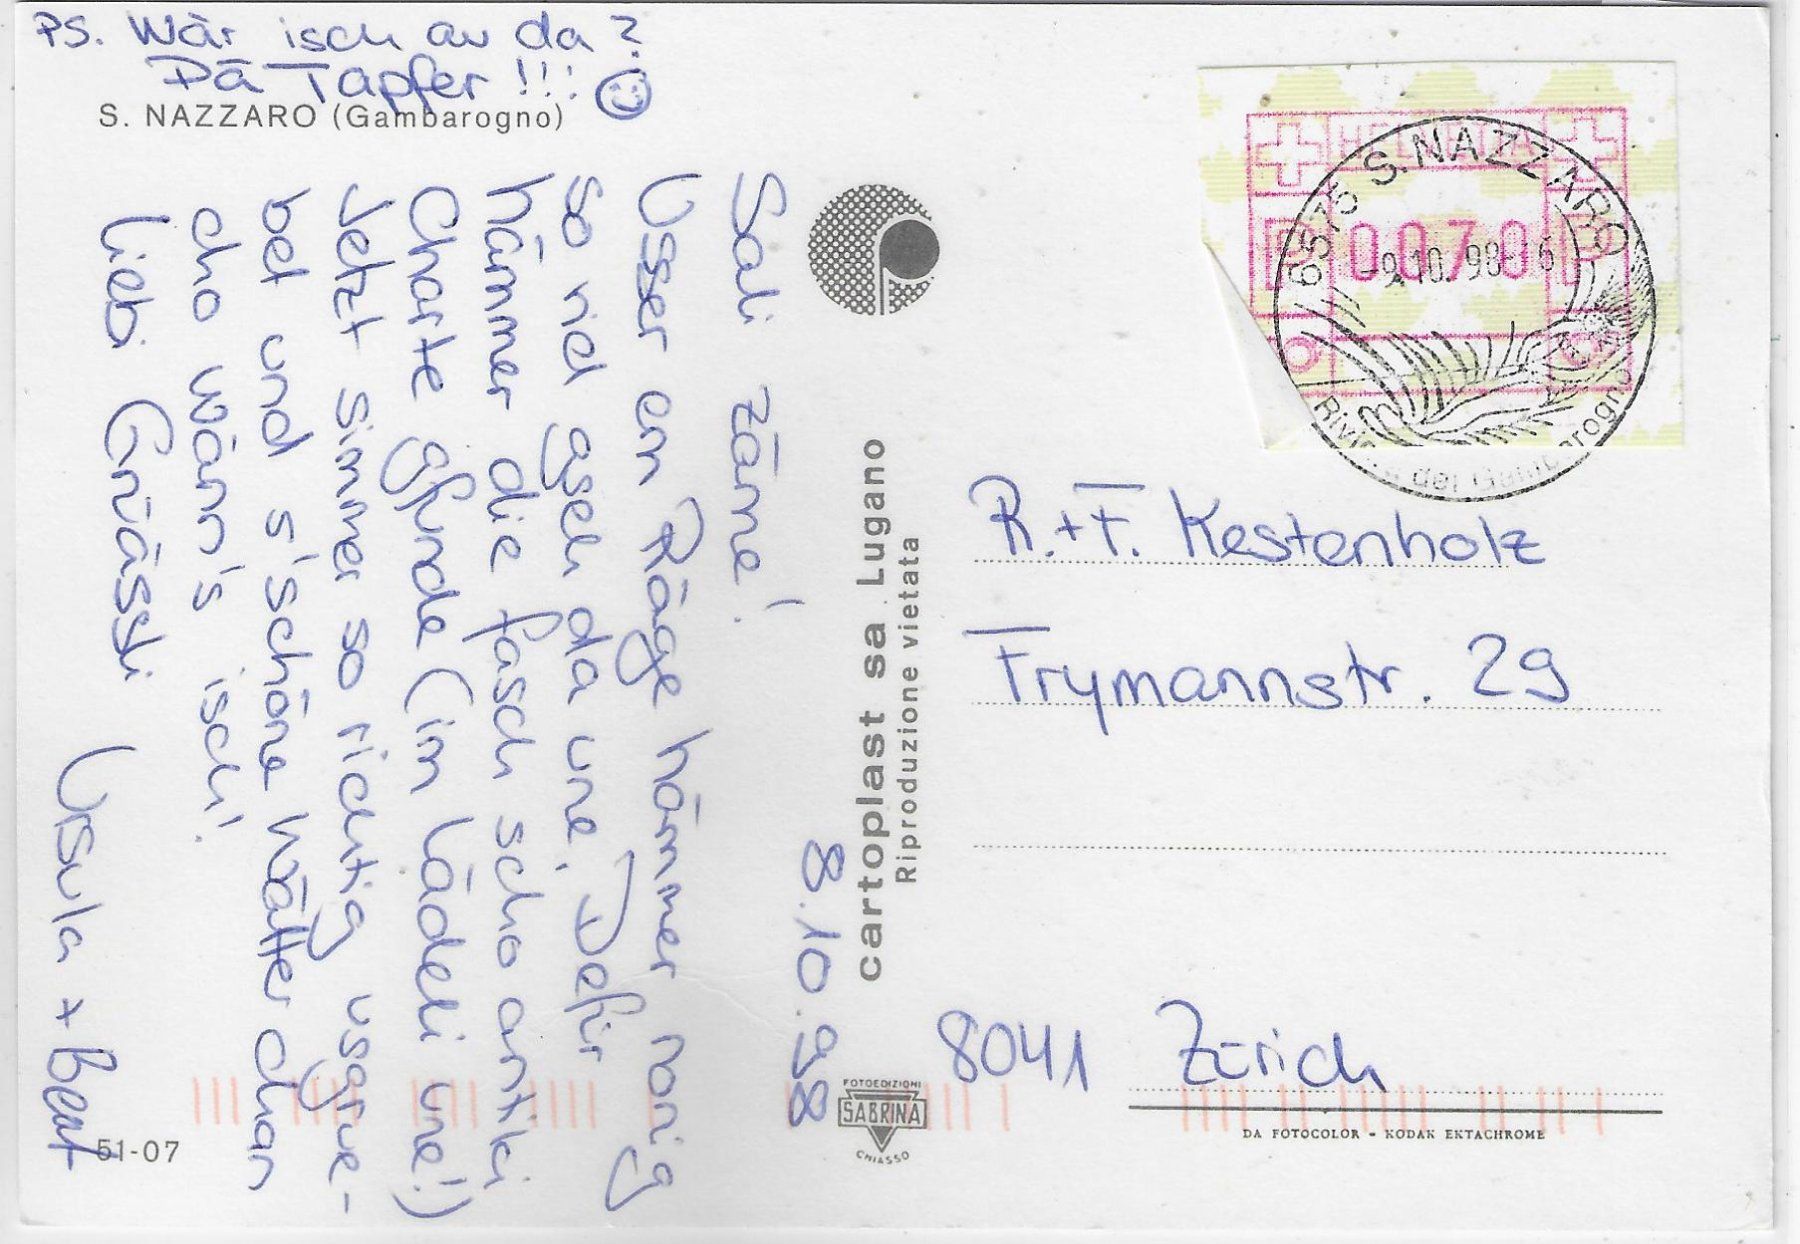 PS. Wär isch au da?
Dä Tapfer!!!
S. NAZZARO (Gambarogno)
8.10.98
Sali zäme!
Usser em Räge hämmer nonig
so viel gseh da une. Defür
hämmer die fasch scho antiki
Charte gfunde (im Lädeli une!)
Jetzt simmer so richtig usgrue-
bet und s'schöne Wätter chan
cho wänn's isch!
Liebi Grüässli
Ursula + Beat
51-07
cartoplast sa Lugano
Riproduzione vietata
FOTOEDIZIONI
SABRINA
CHIASSO
HELVETIA
P 0070 P
6575 S. NAZZARO
-9.10.98-16
Riviera del Gambarogno
R.+F. Kestenholz
Frymannstr. 29
8041 Zürich
DA FOTOCOLOR - KODAK EKTACHROME